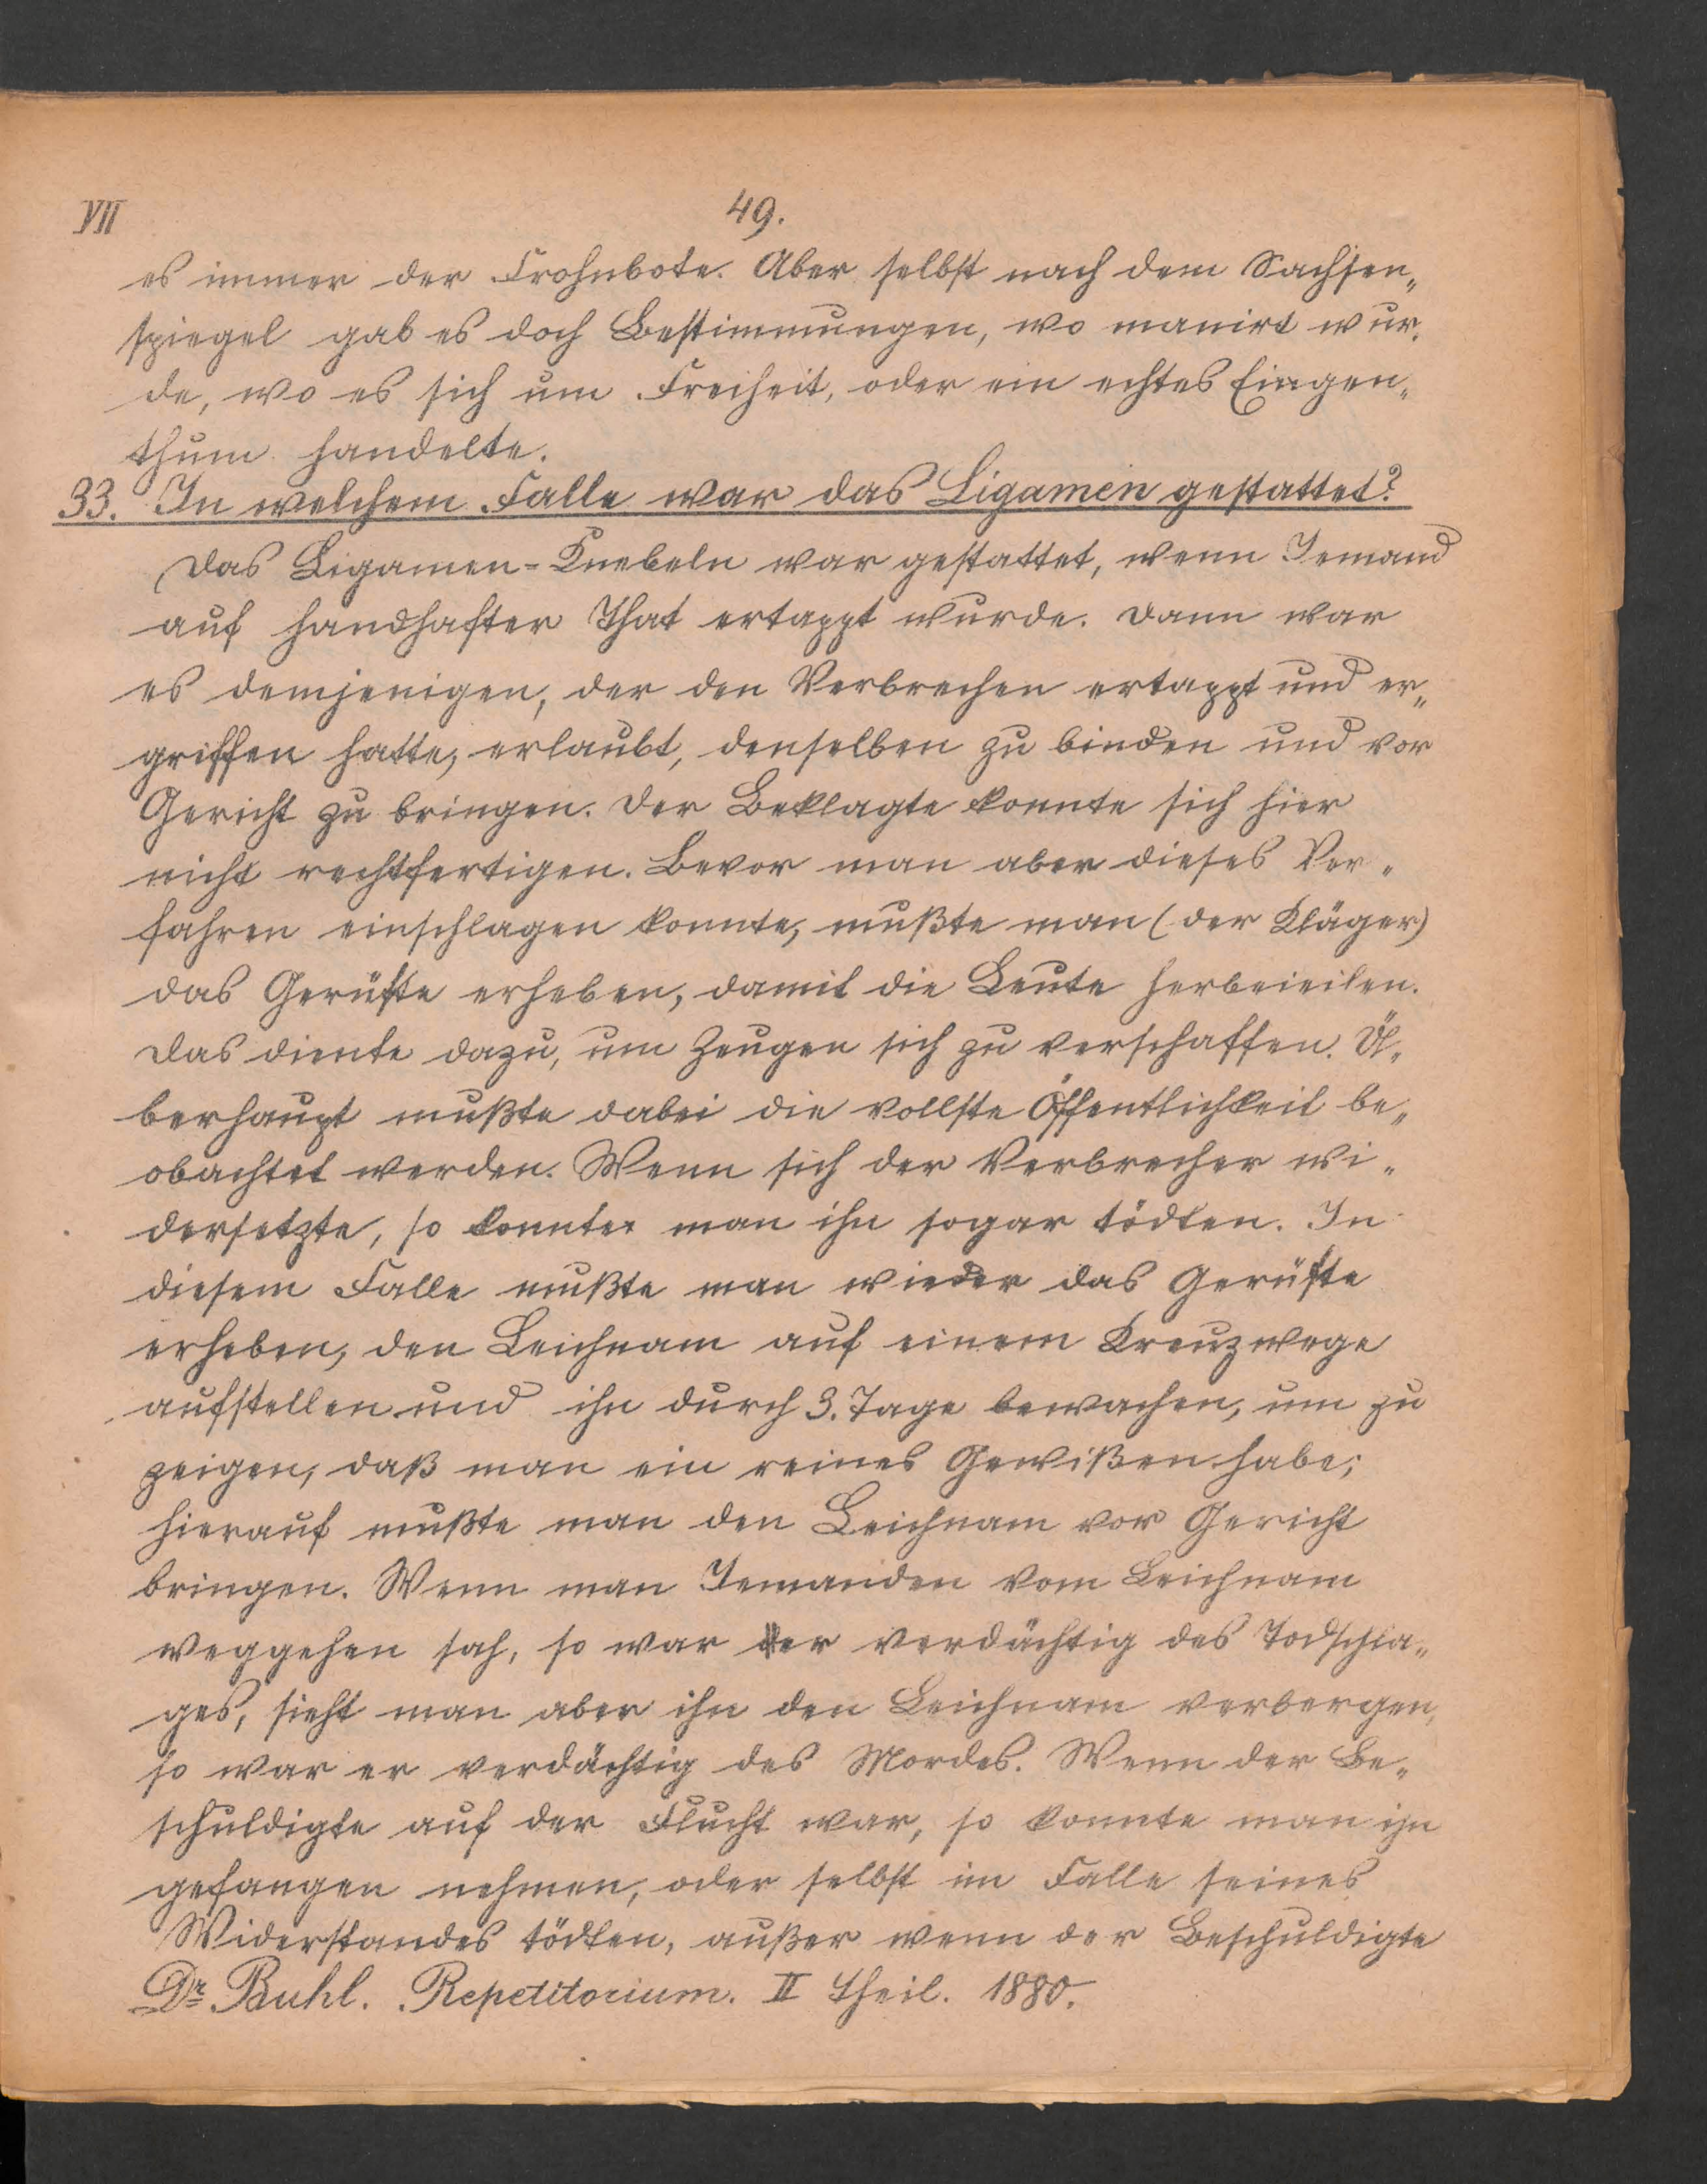 VII
49.
es immer der Frohnbote. Aber selbst nach dem Sachsen„
spiegel gab es doch Bestimmungen, wo manirt wur„
de, wo es sich um Freiheit, oder ein echtes Eingen„
thum handelte.
33. In welchem Falle war das Ligamen gestattet?
Das Ligamen-Knebeln war gestattet, wenn Jemand
auf handhafter That ertappt wurde. Dann war
es demjenigen, der den Verbrechen ertappt und er„
griffen hatte, erlaubt, denselben zu binden und vor
Gericht zu bringen. Der Beklagte konnte sich hier
nicht rechtfertigen. Bevor man aber dieses Ver„
fahren einschlagen konnte, mußte man (der Kläger)
das Gerüfte erheben, damit die Leute herbeieilen.
Das diente dazu, um Zeugen sich zu verschaffen. Ü„
berhaupt mußte dabei die vollste Öffentlichkeit be„
obachtet werden. Wenn sich der Verbrecher wi„
dersetzte, so konnte man ihn sogar tödten. In
diesem Falle mußte man wieder das Gerüfte
erheben, den Leichnam auf einem Kreuzwege
aufstellen und ihn durch 3. Tage bewachen, um zu
zeigen, daß man ein reines Gewißen habe;
hierauf mußte man den Leichnam vor Gericht
bringen. Wenn man Jemanden vom Leichnam
weggehen sah, so war er verdächtig des Todschla„
ges, sieht man aber ihn den Leichnam verbergen,
so war er verdächtig des Mordes. Wenn der Be„
schuldigte auf der Flucht war, so konnte man ihn
gefangen nehmen, oder selbst im Falle seines
Widerstandes tödten, außer wenn der Beschuldigte
Dr Buhl. Repetitorium. II Theil. 1880.